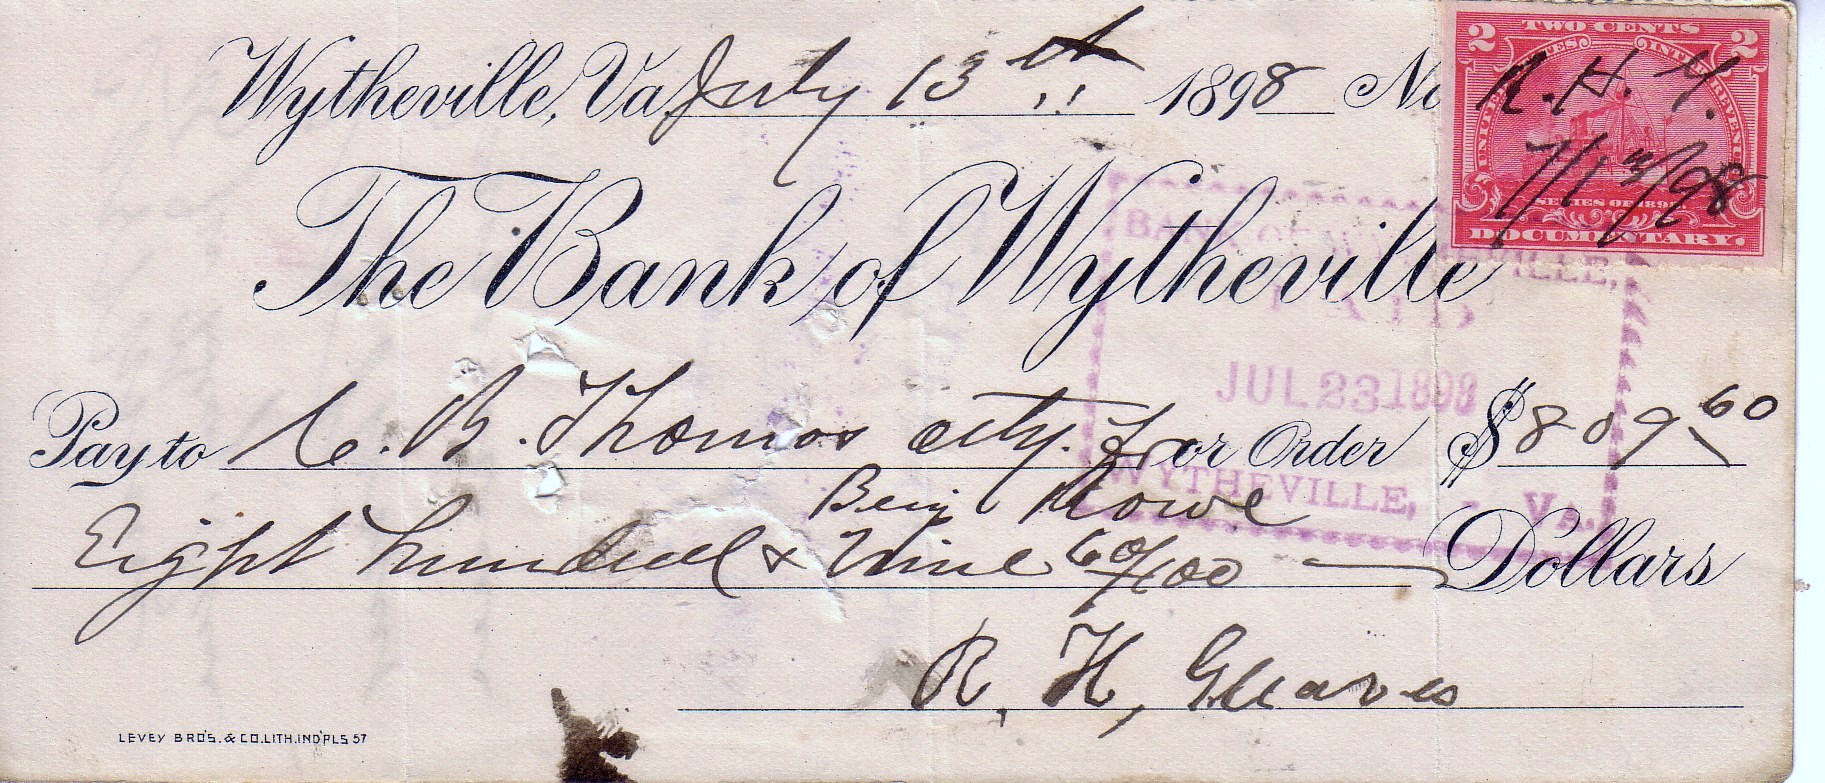 Wytheville, Va July 13th 1898 No
2 TWO CENTS 2
UNITED STATES INTER. REVENUE
R. H. G.
7/13/98
SERIES OF 1898
DOCUMENTARY.
The Bank of Wytheville
BANK OF WYTHEVILLE,
PAID
JUL 23 1898
WYTHEVILLE, VA.
Pay to C. B. Thomas atty. for or Order $809.60
Benj Howe
Eight hundred & Nine 60/100 Dollars
R. H, Gleaves
LEVEY BRO'S. & CO. LITH. IND'PLS 57